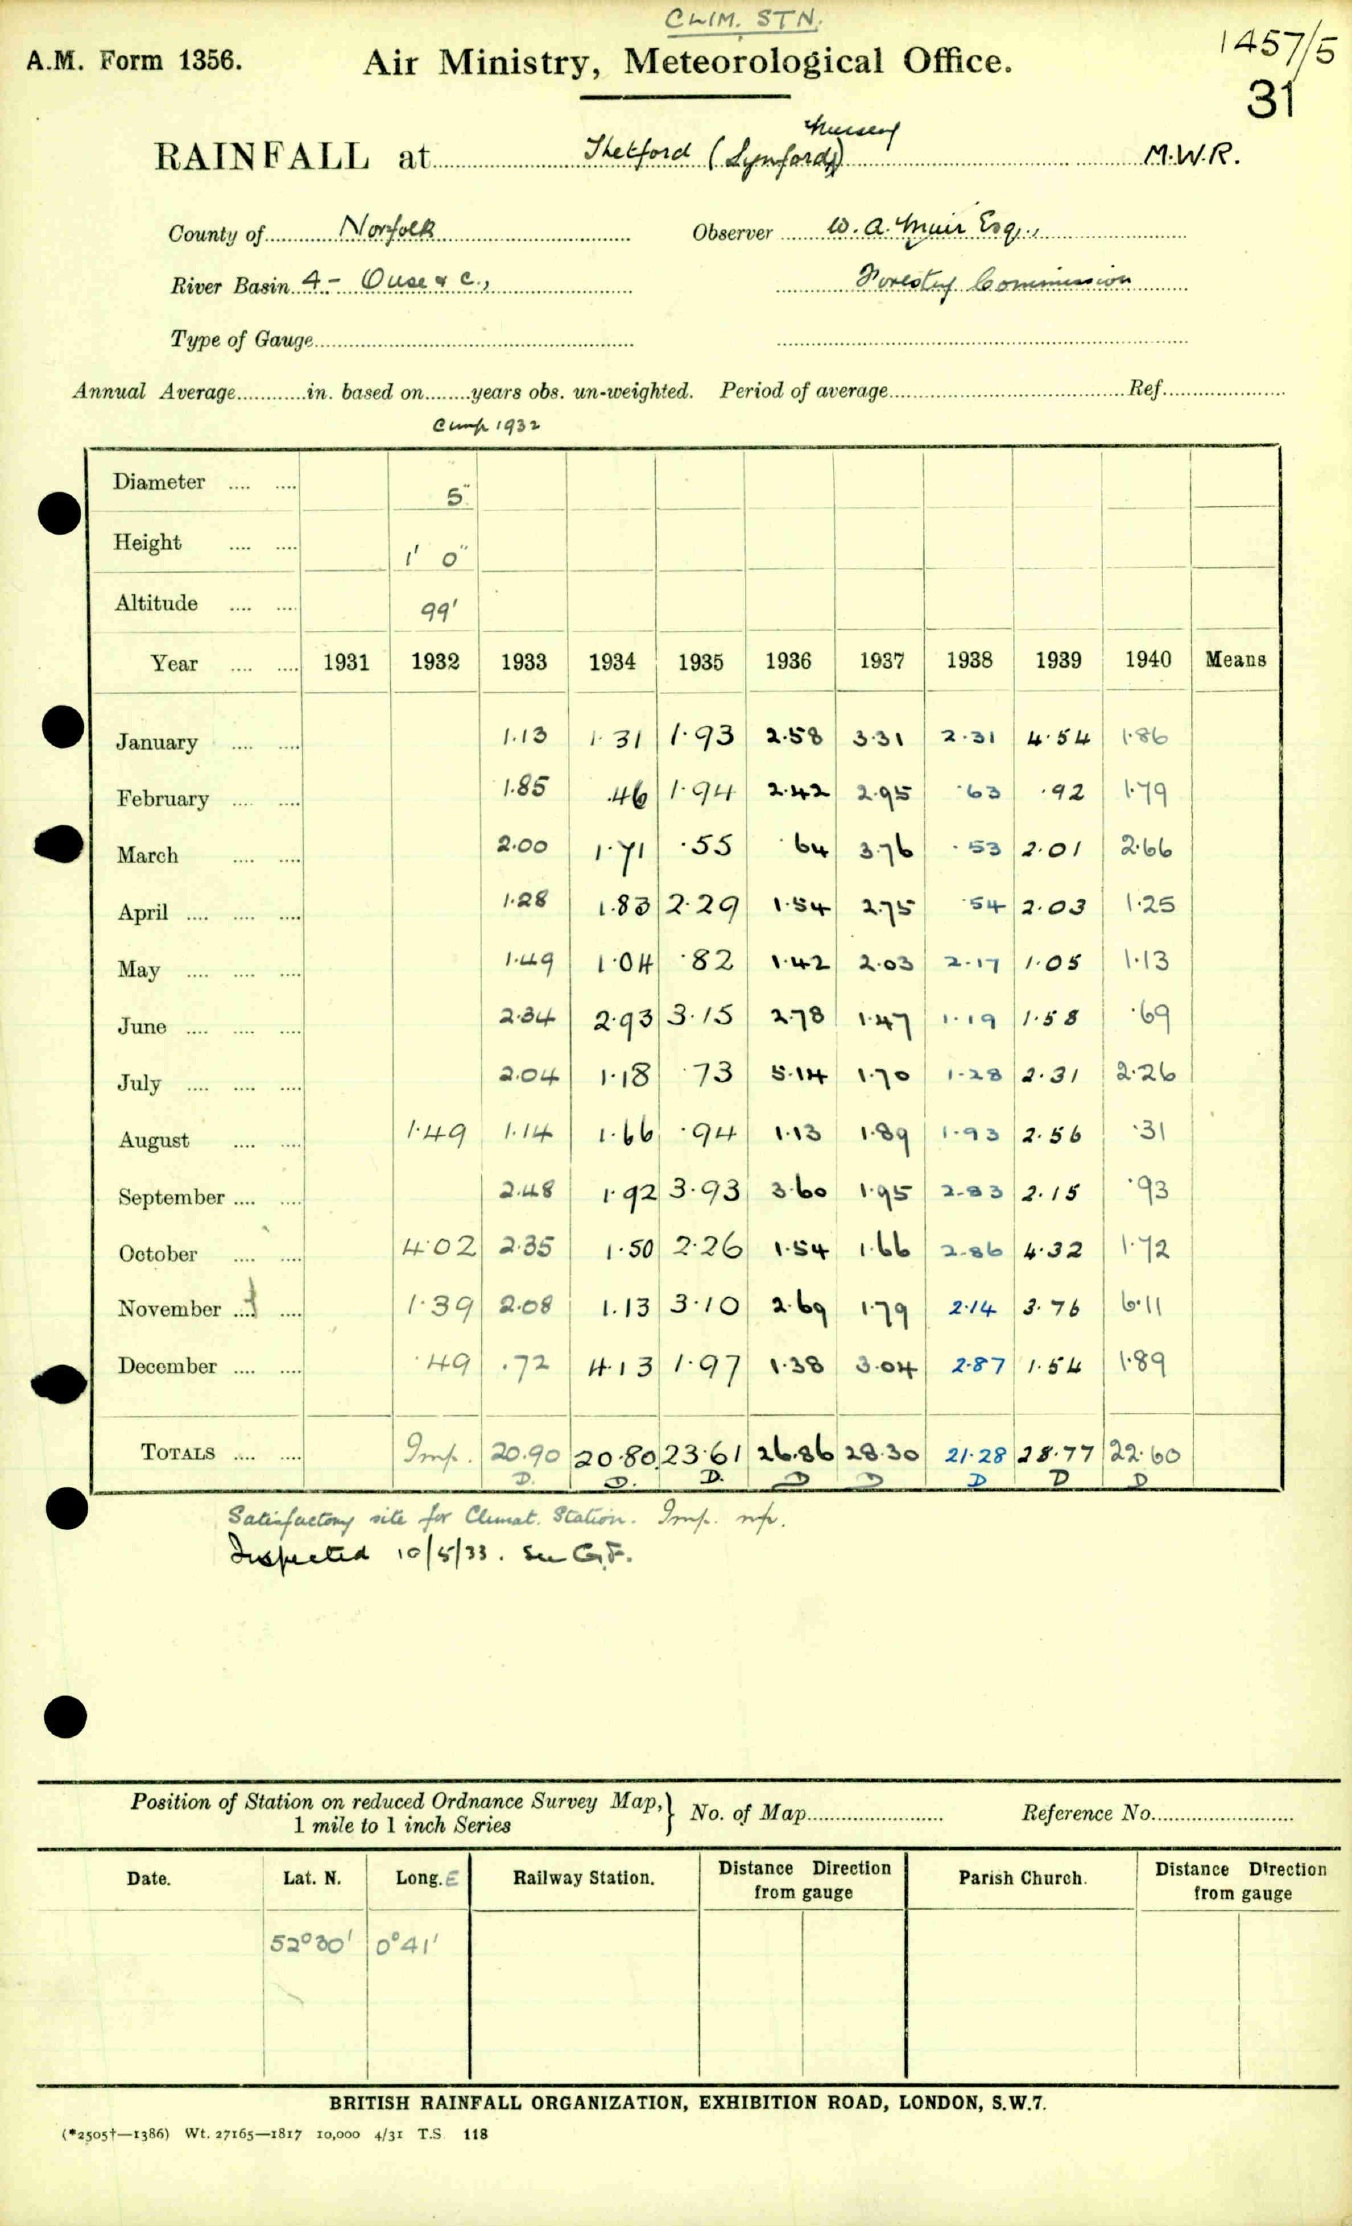 CLIM. STN.
1457/5
A.M. Form 1356. Air Ministry, Meteorological Office.
31
Nursery
RAINFALL at Thetford (Lynford) M.W.R.
County of Norfolk Observer W. A. Muir Esq.,
River Basin 4 - Ouse & c., Forestry Commission
Type of Gauge
Annual Average in. based on years obs. un-weighted. Period of average Ref.
1932
Diameter 5"
Height 1' 0"
Altitude 99'
Year 1931 1932 1933 1934 1935 1936 1937 1938 1939 1940 Means
January 1.13 1.31 1.93 2.58 3.31 2.31 4.54 1.86
February 1.85 .46 1.94 2.42 2.95 .63 .92 1.79
March 2.00 1.71 .55 .64 3.76 .53 2.01 2.66
April 1.28 1.83 2.29 1.54 2.75 .54 2.03 1.25
May 1.49 1.04 .82 1.42 2.03 2.17 1.05 1.13
June 2.34 2.93 3.15 2.78 1.47 1.19 1.58 .69
July 2.04 1.18 .73 5.14 1.70 1.28 2.31 2.26
August 1.49 1.14 1.66 .94 1.13 1.89 1.93 2.56 .31
September 2.48 1.92 3.93 3.60 1.95 2.83 2.15 .93
October 4.02 2.35 1.50 2.26 1.54 1.66 2.86 4.32 1.72
November 1.39 2.08 1.13 3.10 2.69 1.79 2.14 3.76 6.11
December .49 .72 4.13 1.97 1.38 3.04 2.87 1.54 1.89
TOTALS Imp. 20.90 20.80 23.61 26.86 28.30 21.28 28.77 22.60
D. D. D. D D D D D
Satisfactory site for Climat. Station. Imp.
Inspected 10/5/33. See G.F.
Position of Station on reduced Ordnance Survey Map, } No. of Map Reference No.
1 mile to 1 inch Series
Date. Lat. N. Long. E Railway Station. Distance Direction from gauge Parish Church. Distance Direction from gauge
52°30' 0°41'
BRITISH RAINFALL ORGANIZATION, EXHIBITION ROAD, LONDON, S.W.7.
(*2505†—1386) Wt. 27165—1817 10,000 4/31 T.S. 118